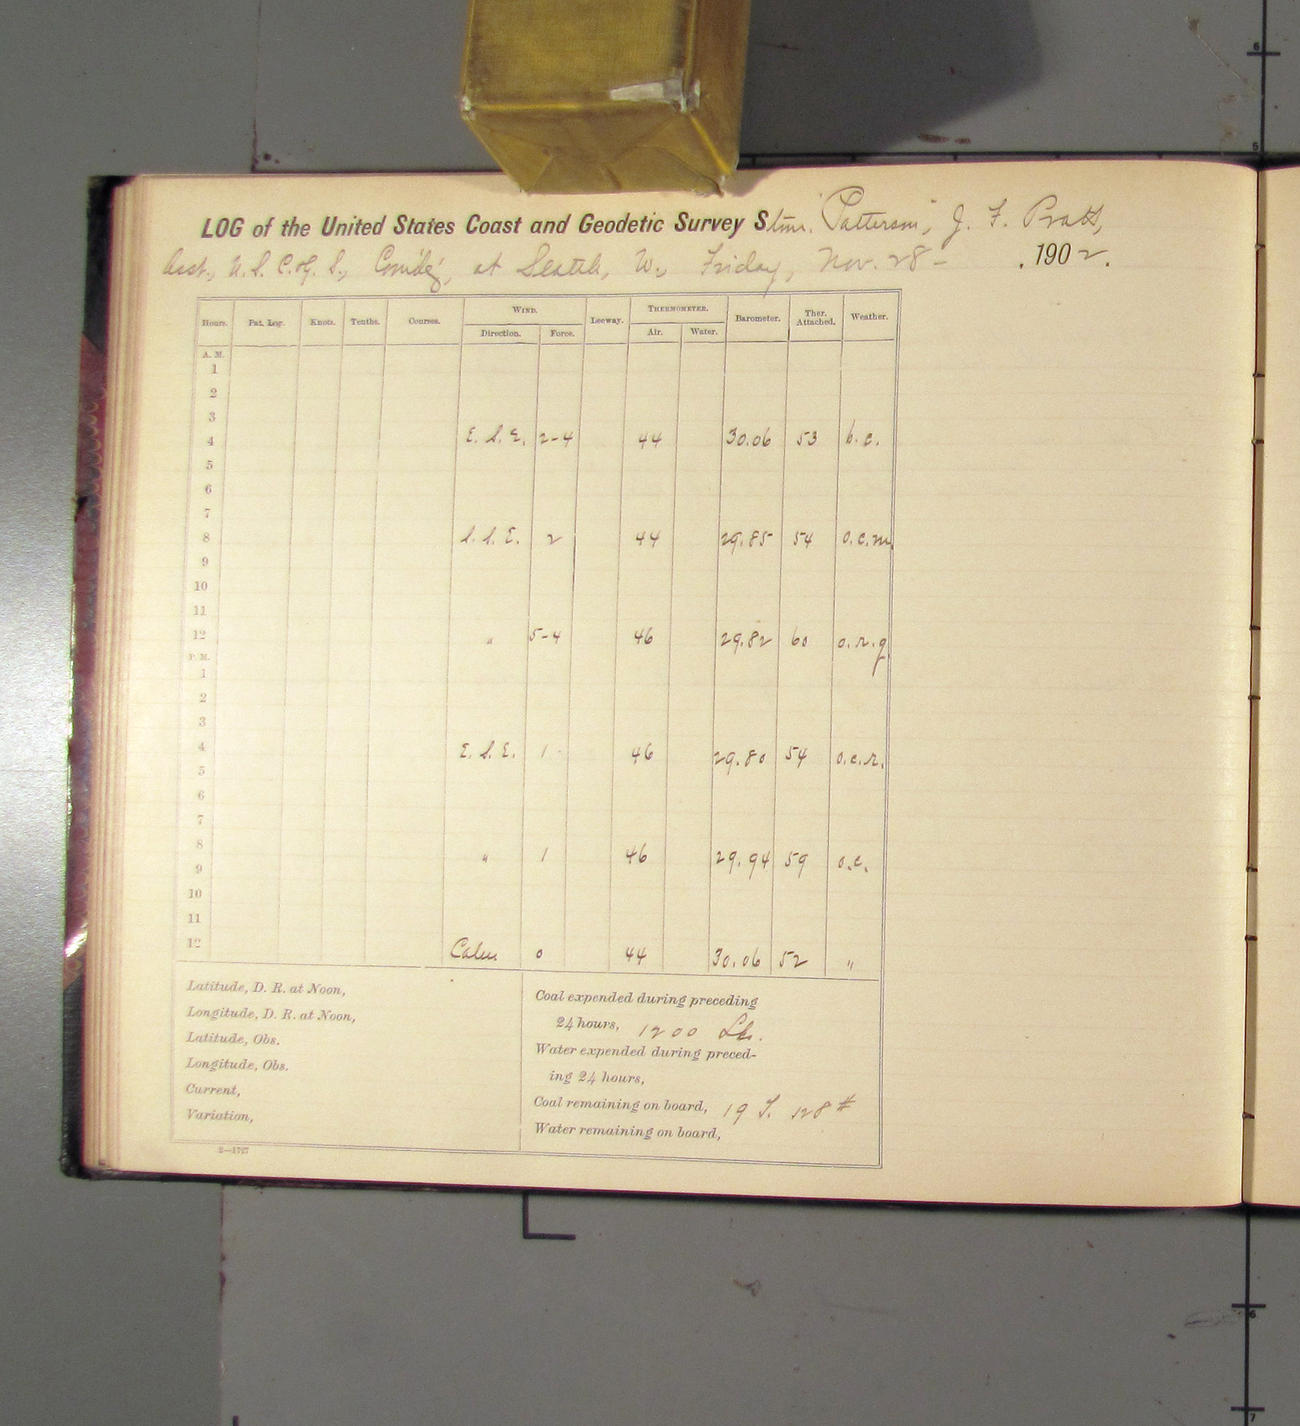 LOG of the United States Coast and Geodetic Survey Stmr. "Patterson", J. F. Pratt,
Asst., U. S. C. & G. S., Comd'g, at Seattle, W., Friday, Nov. 28 - , 1902.
Hours. Pat. Log. Knots. Tenths. Courses. WIND. Direction. Force. Leeway. THERMOMETER. Air. Water. Barometer. Ther. Attached. Weather.
A. M.
1
2
3
4 E. S. E. 2-4 44 30.06 53 b.c.
5
6
7
8 S. S. E. 2 44 29.85 54 o.c.m.
9
10
11
12 " 5-4 46 29.82 60 o.r.q.
P. M.
1
2
3
4 E. S. E. 1 46 29.80 54 o.c.r.
5
6
7
8 " 1 46 29.94 59 o.c.
9
10
11
12 Calm 0 44 30.06 52 "
Latitude, D. R. at Noon,
Longitude, D. R. at Noon,
Latitude, Obs.
Longitude, Obs.
Current,
Variation,
Coal expended during preceding
24 hours, 1200 Lbs.
Water expended during preced-
ing 24 hours,
Coal remaining on board, 19 T. 128 #
Water remaining on board,
2—1727
6
5
6
7